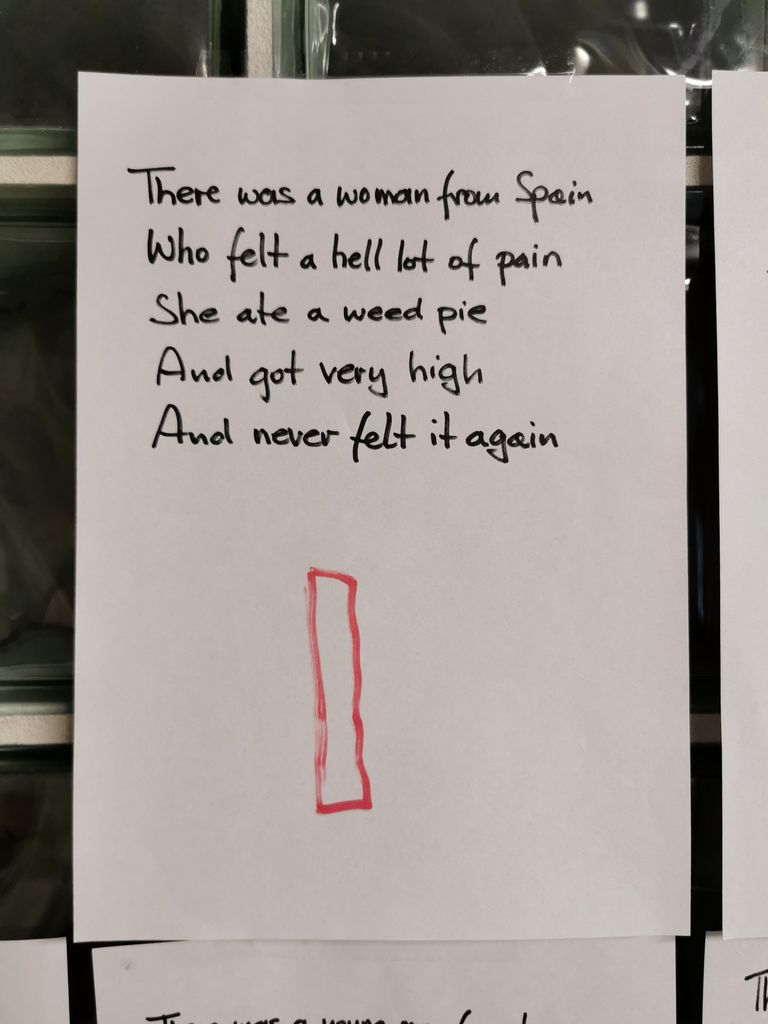 There was a woman from Spain
Who felt a hell lot of pain
She ate a weed pie
And got very high
And never felt it again
There was a young
Th